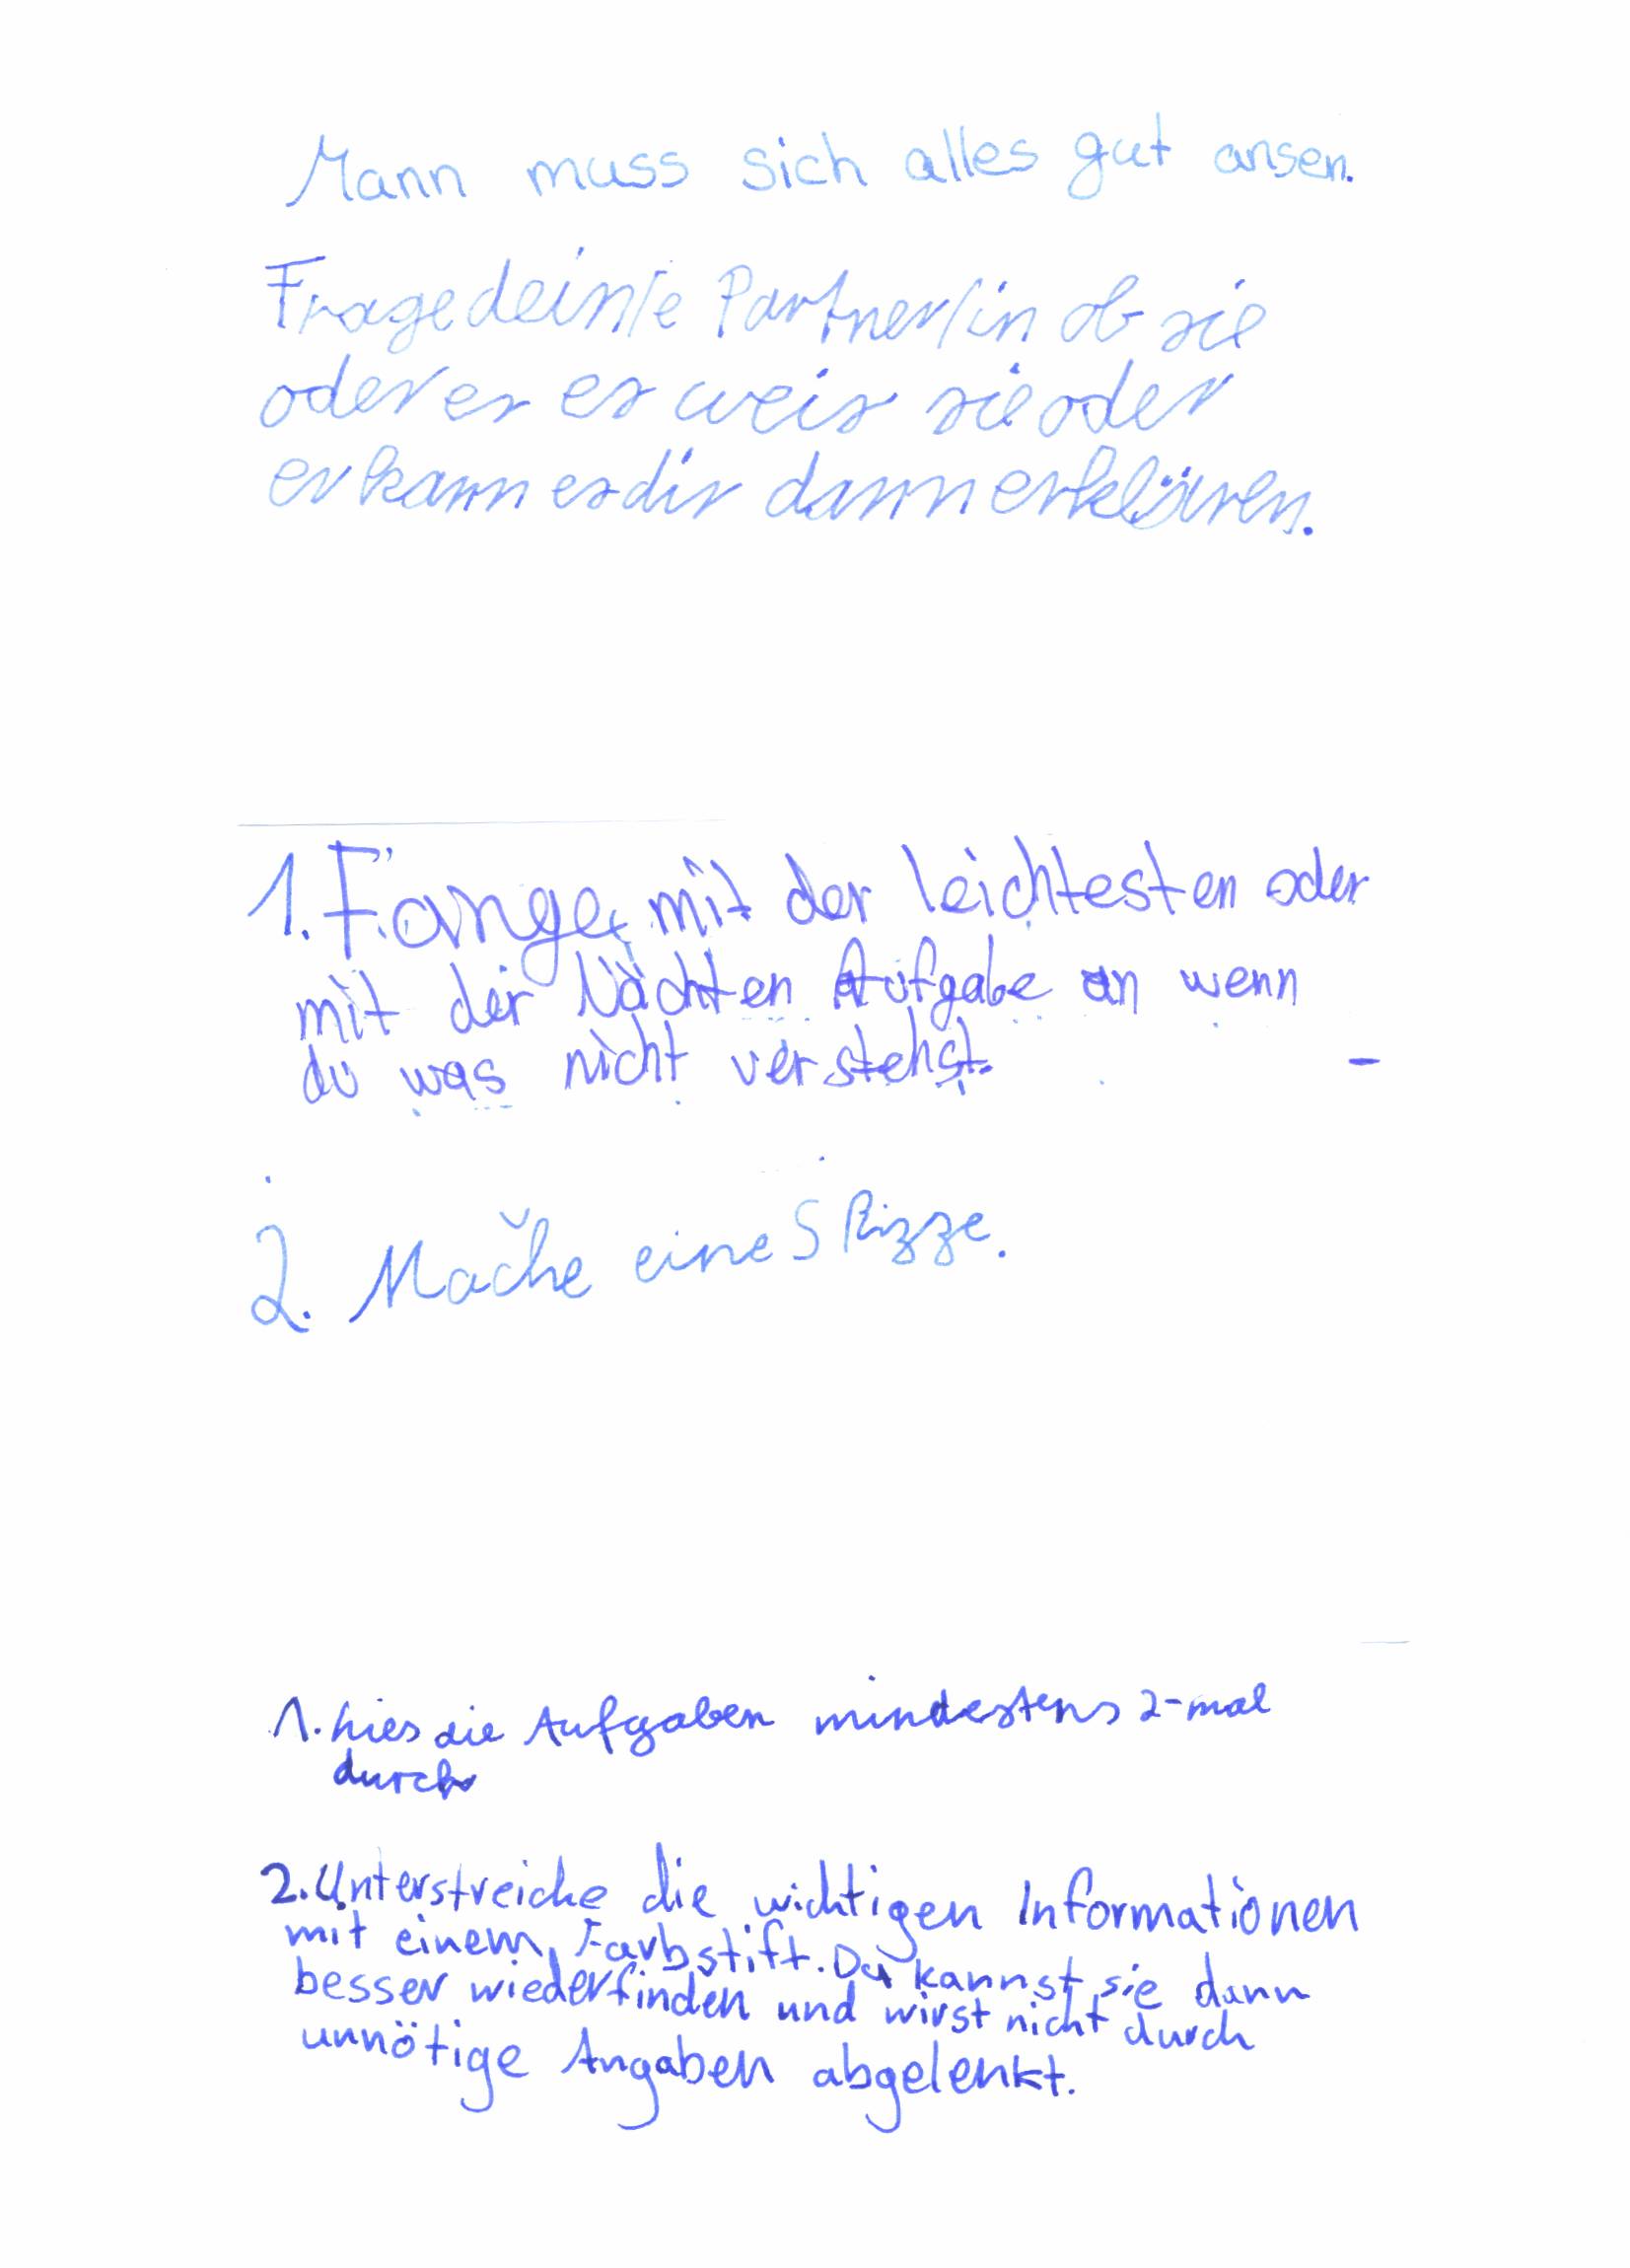 Mann muss sich alles gut ansen.
Frage dein/e Partner/in ob sie
oder er es weis sie oder
er kann es dir dann erklären.
1. Fange mit der leichtesten oder
mit der Nächten Aufgabe an wenn
du was nicht verstehst.
2. Mache eine Skizze.
1. Lies die Aufgaben mindestens 2-mal
durch
2. Unterstreiche die wichtigen Informationen
mit einem Farbstift. Du kannst sie dann
besser wiederfinden und wirst nicht durch
unnötige Angaben abgelenkt.